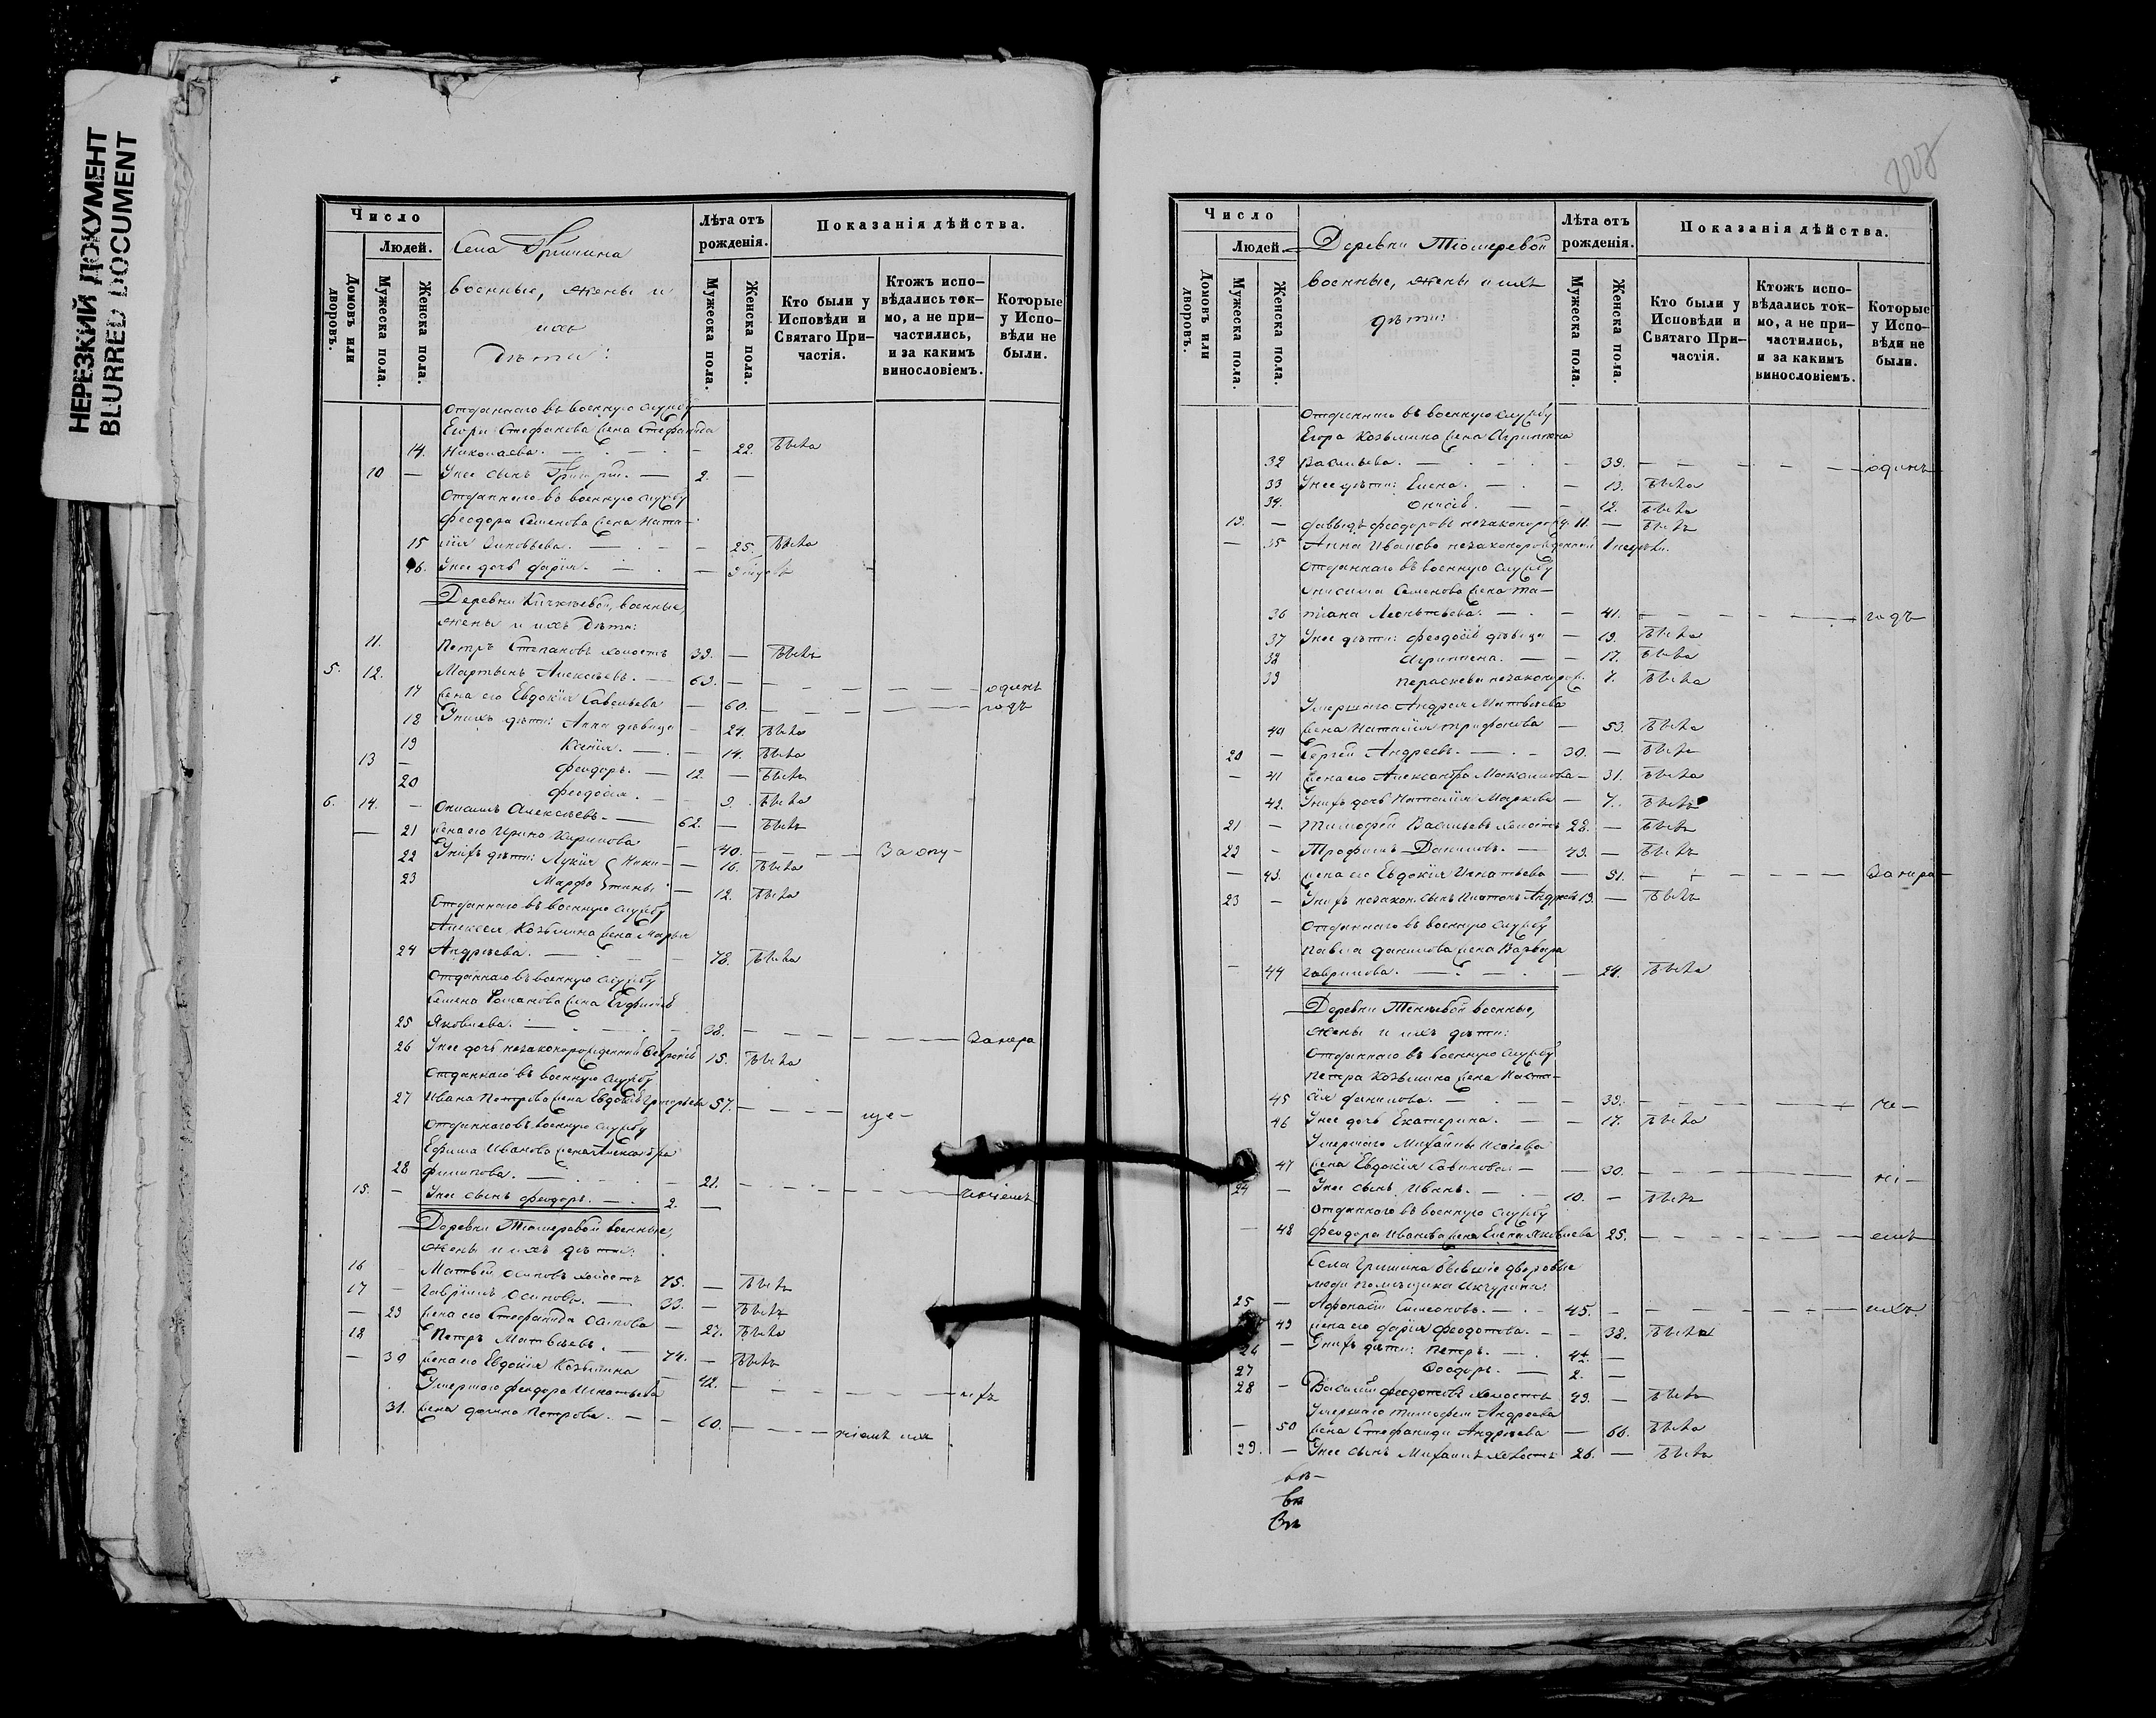 НЕРЕЗКИЙ ДОКУМЕНТ
BLURRED DOCUMENT
Число
Людей.
Домовъ или дворовъ.
Мужеска пола.
Женска пола.
Села Гришина
военные, жены и
ихъ
дѣти:
Лѣта отъ рожденія.
Мужеска пола.
Женска пола.
Показанія дѣйства.
Кто были у Исповѣди и Святаго Причастія.
Ктожъ исповѣдались токмо, а не причастились, и за какимъ винословіемъ.
Которые у Исповѣди не были.
Отданнаго въ военную службу
Егора Стефанова жена Стефанида
14. Николаева. — 22. Была
10 — У нее сынъ Григорій. — 2. —
Отданнаго въ военную службу
Феодора Семенова жена Ната-
15 лія Зиновьева. — 25. Была
16. У нее дочь Дарія. —
Деревни Кичкѣевой, военные,
жены и ихъ дѣти:
11. Петръ Степановъ холостъ 39. — Былъ
5. 12. Мартынъ Алексѣевъ. — 69. — одинъ
17 жена его Евдокія Савельева — 60. — годъ
18 У нихъ дѣти: Анна дѣвица — 24. Была
19 Ксенія. — 14. Была
13 — Феодоръ. — 12. — Былъ
20 Феодосія. — 9. Была
6. 14. — Онисимъ Алексѣевъ. — 62. — Былъ
— 21 жена его Ирина Кирилова — 40. — За опу-
22 У нихъ дѣти: Лукія Ники- — 16. Была
23 Марфа тины — 12. Была
Отданнаго въ военную службу
Алексея Козьмина жена Марья
24 Андрѣева. — 78. Была
Отданнаго въ военную службу
Семена Романова жена Евфимія
25 Яковлева. — 38. — За нера
26 У нее дочь незаконорожденная 15. Была
Отданнаго въ военную службу
27 Ивана Петрова жена Евдокія Григорьева 57. — ще-
Отданнаго въ военную службу
Ефима Иванова жена Александра
28 Филипова. — 21. —
15. — У нее сынъ Феодоръ. — 2. —
Деревни Тюмеревой военные,
жены и ихъ дѣти:
16 — Матвѣй Осиповъ холостъ 75. — Былъ
17 — Гавріилъ Осиповъ. — 33. — Былъ
— 29 жена его Стефанида Осипова — 27. Была
18 Петръ Матвѣевъ. — 74. — Былъ
— 30 жена его Евдокія Козьмина — 42. — ихъ
Умершаго Феодора Игнатьева
31. жена Домна Петрова. — 60. — ніемъ ихъ
Число
Людей.
Домовъ или дворовъ.
Мужеска пола.
Женска пола.
Деревни Тюмеревой
военные, жены и ихъ
дѣти:
Лѣта отъ рожденія.
Мужеска пола.
Женска пола.
Показанія дѣйства.
Кто были у Исповѣди и Святаго Причастія.
Ктожъ исповѣдались токмо, а не причастились, и за какимъ винословіемъ.
Которые у Исповѣди не были.
Отданнаго въ военную службу
Егора Козьмина жена Агрипина
32 Васильева. — 39. — одинъ
33 У нее дѣти: Елена. — 13. Была
34. — 12. Была
19. — Давыдъ Феодоровъ незаконорожд. 11. — Былъ
— 35 Анна Иванова незаконорожденная
Отданнаго въ военную службу
Онисима Семенова жена Та-
36 тіана Леонтьева. — 41. — годъ
37 У нее дѣти: Феодосія дѣвица — 19. Была
38 Агрипина. — 17. Была
39 Параскева незаконорож. 7. Была
Умершаго Андрея Матвѣева
40 жена Наталія Трифонова — 53. Была
20 — Сергей Андреевъ. — 30. — Былъ
— 41 жена его Александра Максимова — 31. Была
42. У нихъ дочь Наталія Маркова — 7. Была
21 — Тимофей Васильевъ холостъ 28. — Былъ
22 — Трофимъ Даниловъ. — 49. — Былъ
— 43. жена его Евдокія Игнатьева — 51. — За нера-
23 — У нихъ незакон. сынъ Платонъ Андреевъ 19. — Былъ
Отданнаго въ военную службу
Павла Данилова жена Варвара
— 44 Гаврилова. — 24. Была
Деревни Тенѣевой военные,
жены и ихъ дѣти:
Отданнаго въ военную службу
Петра Козьмина жена Наста-
45 сія Данилова. — 39. — че-
46 У нее дочь Екатерина. — 17. Была
Умершаго Михаила Исаева
47 жена Евдокія Савинова — 30. — ні-
24 — У нее сынъ Иванъ. — 10. — Былъ
Отданнаго въ военную службу
— 48 Феодора Иванова жена Елена Яковлева 25. — емъ
Села Гришина бывшіе дворовые
люди помѣщика Ижгурина:
25 — Афонасій Симеоновъ. — 45. — ихъ
49 жена его Дарія Федотова. — 38. Была
26 — У нихъ дѣти: Петръ. — 4. —
27 Феодоръ. — 2. —
28 — Василій Феодотовъ холостъ 49. — Былъ
Умершаго Тимофея Андреева
— 50 жена Стефанида Андрѣева — 66. Была
29. — У нее сынъ Михаилъ холостъ 26. — Былъ